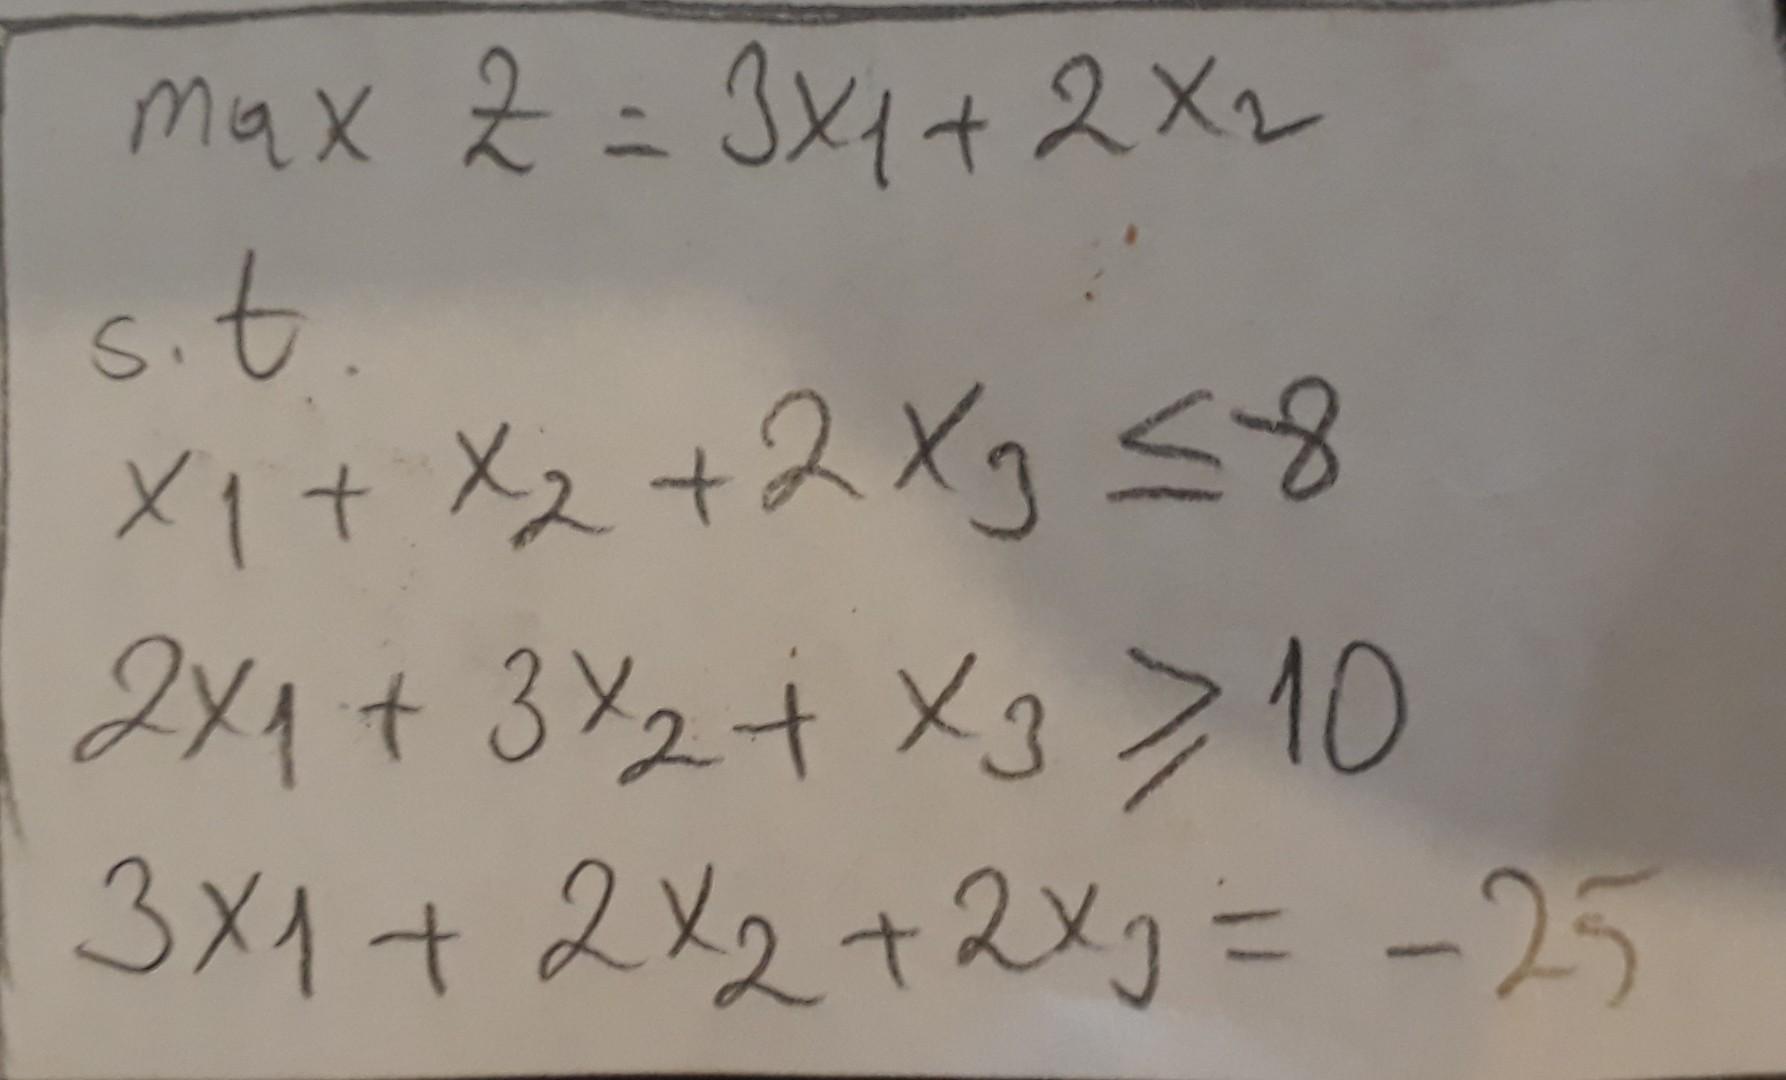 max Z = 3x1 + 2x2
s.t.
x1 + x2 + 2x3 ≤ -8
2x1 + 3x2 + x3 ≥ 10
3x1 + 2x2 + 2x3 = -25